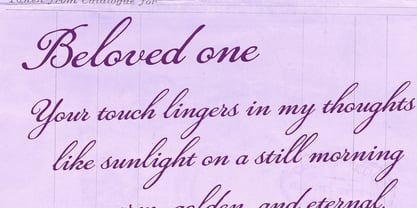 Taken from Catalogue for
Beloved one
Your touch lingers in my thoughts
like sunlight on a still morning
golden, and eternal.